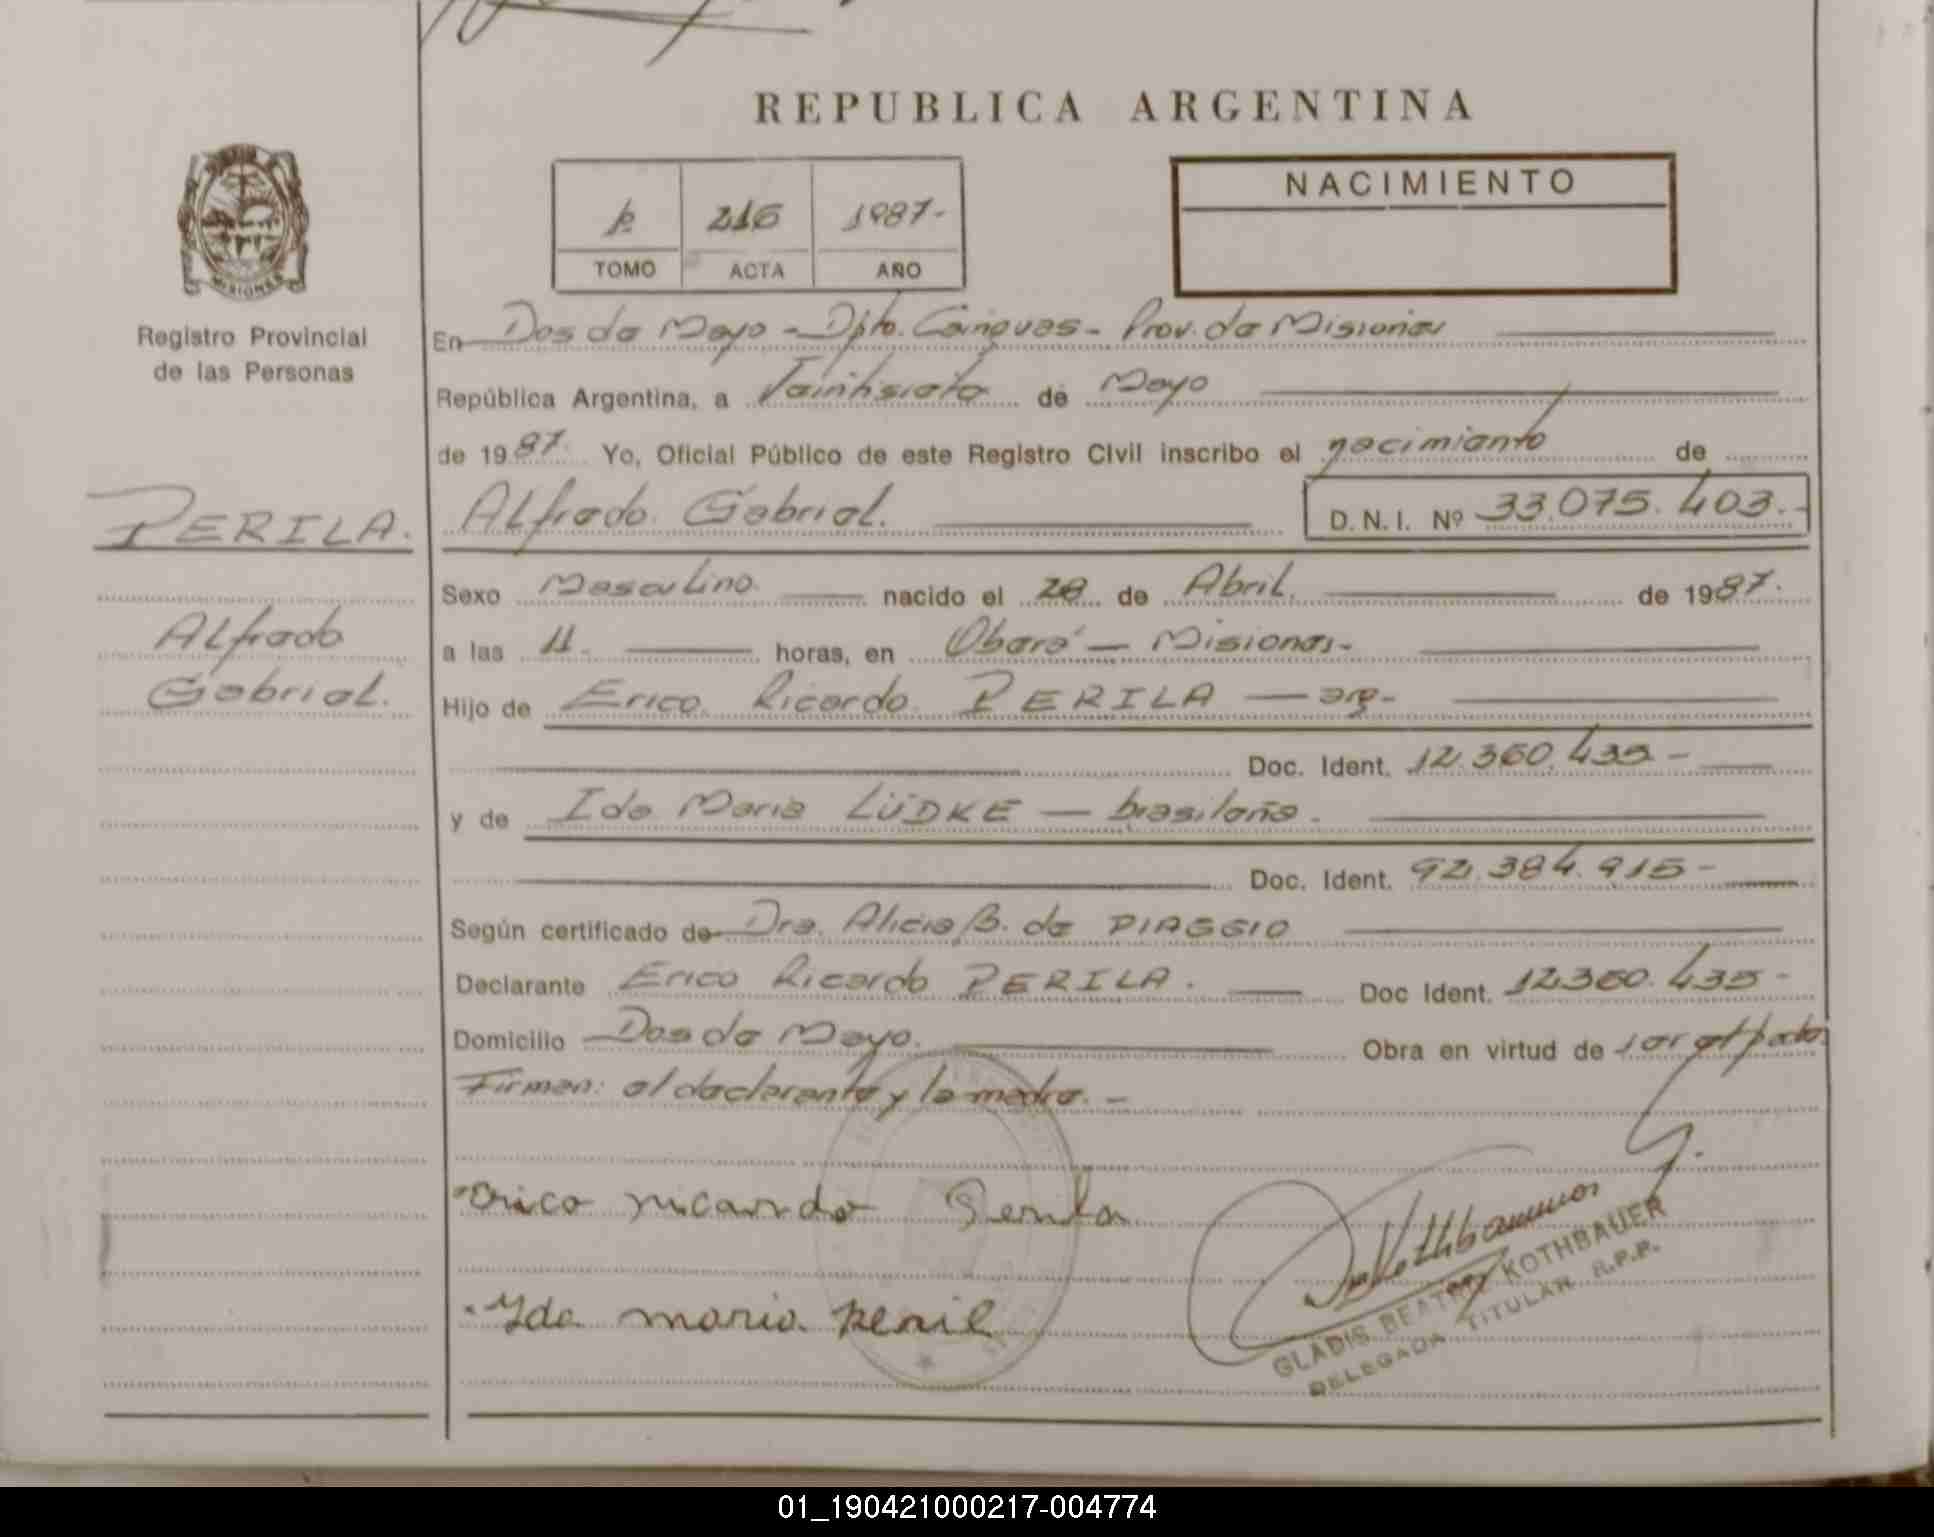 REPUBLICA ARGENTINA
NACIMIENTO
1º 216 1987-
TOMO ACTA AÑO
MISIONES
Registro Provincial
de las Personas
PERILA.
Alfredo
Gabriel.
En Dos de Mayo - Dpto. Cainguas - Prov. de Misiones
República Argentina, a Veintisiete de Mayo
de 1987. Yo, Oficial Público de este Registro Civil inscribo el nacimiento de
Alfredo Gabriel. D.N.I. Nº 33.075.403.-
Sexo Masculino. nacido el 28 de Abril. de 1987.
a las 11. horas, en Oberá - Misiones-
Hijo de Erico Ricardo PERILA — arg-
Doc. Ident. 12.360.435 -
y de Ida Maria LÜDKE — brasileña.
Doc. Ident. 92.384.915-
Según certificado de Dra. Alicia B. de PIAGGIO
Declarante Erico Ricardo PERILA. Doc Ident. 12.360.435-
Domicilio Dos de Mayo. Obra en virtud de ser el padre.
Firman: el declarante y la madre. -
Erico Ricardo Perila
Yda maria peril
Kothbauer
GLADIS BEATRIZ KOTHBAUER
DELEGADA TITULAR R.P.P.
01_190421000217-004774